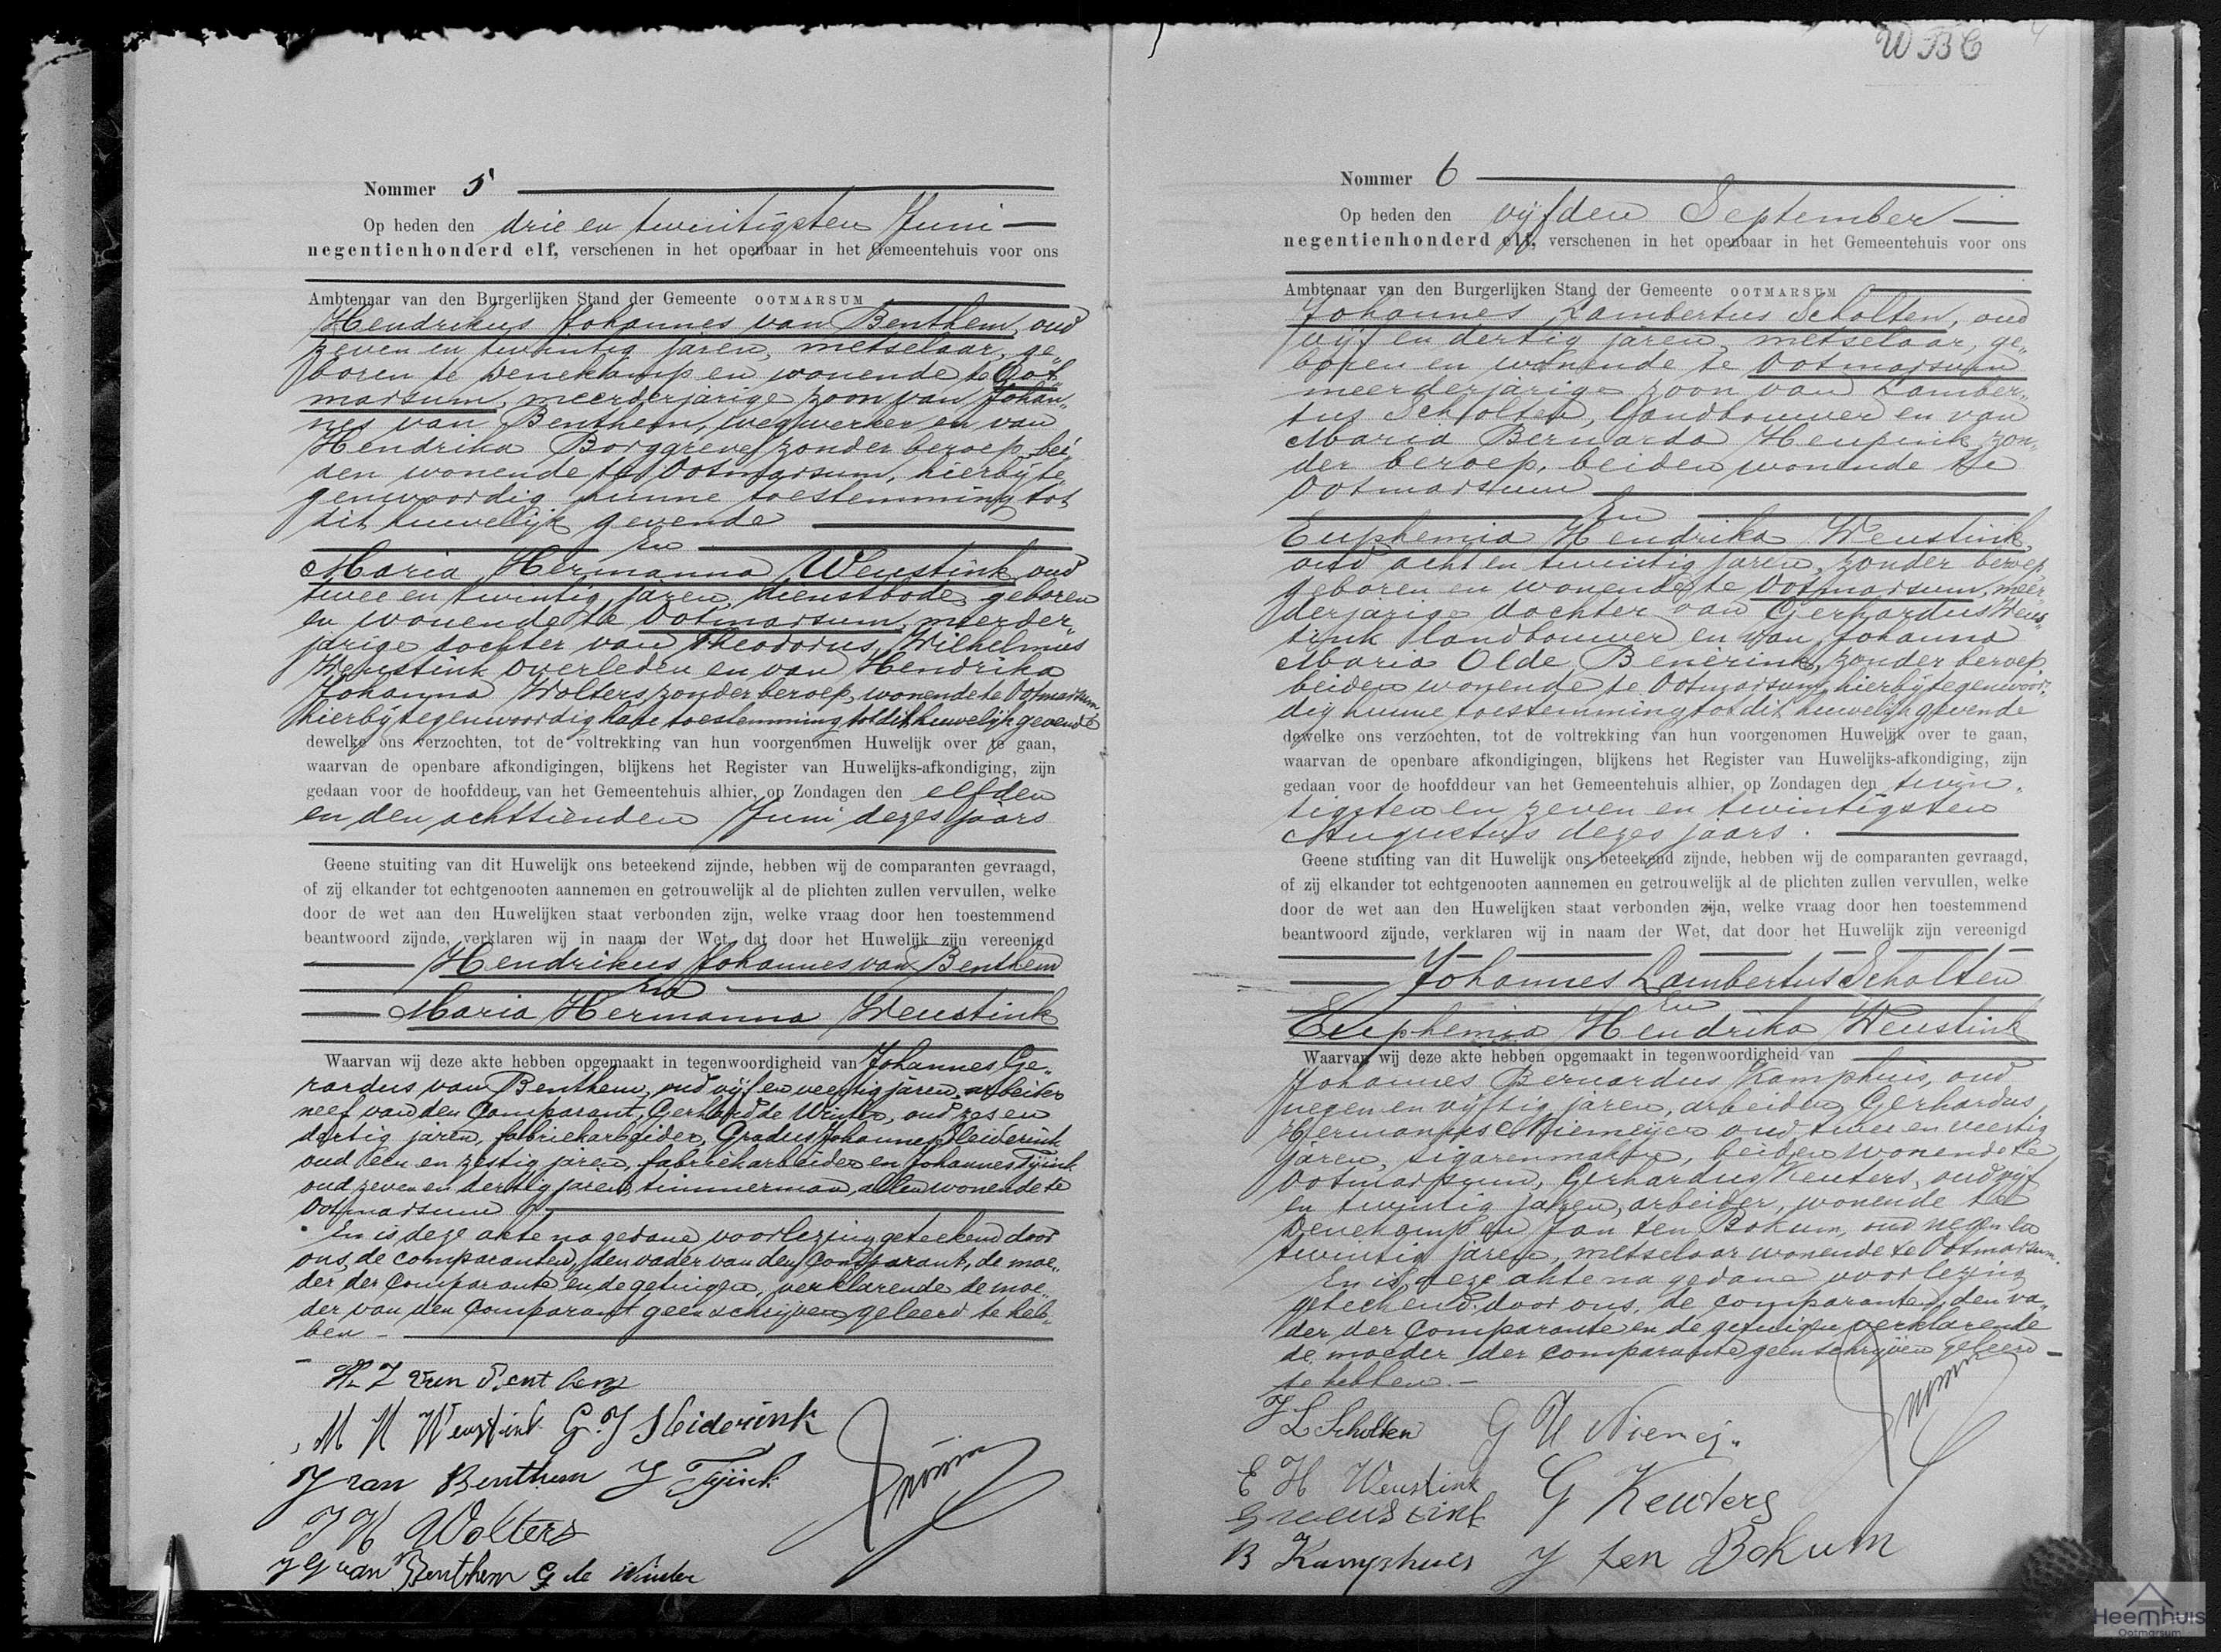 Nommer 5
Op heden den drie en twintigsten Juni
negentienhonderd elf, verschenen in het openbaar in het Gemeentehuis voor ons
Ambtenaar van den Burgerlijken Stand der Gemeente OOTMARSUM
Hendrikus Johannes van Benthem, oud
zeven en twintig jaren, metselaar, ge„
boren te Denekamp en wonende te Oot„
marsum, meerderjarige zoon van Johan„
nes van Benthem, wegwerker en van
Hendrika Borggreve zonder beroep, bei„
den wonende te Ootmarsum, hierbij te„
genwoordig hunne toestemming tot
dit huwelijk gevende
En
Maria Hermanna Weustink, oud
twee en twintig jaren, dienstbode, geboren
en wonende te Ootmarsum, meerder„
jarige dochter van Theodorus Wilhelmus
Weustink overleden en van Hendrika
Johanna Wolters, zonder beroep, wonende te Ootmarsum
hierbij tegenwoordig hare toestemming tot dit huwelijk gevende
dewelke ons verzochten, tot de voltrekking van hun voorgenomen Huwelijk over te gaan,
waarvan de openbare afkondigingen, blijkens het Register van Huwelijks-afkondiging, zijn
gedaan voor de hoofddeur van het Gemeentehuis alhier, op Zondagen den elfden
en den achttienden Juni dezes jaars
Geene stuiting van dit Huwelijk ons beteekend zijnde, hebben wij de comparanten gevraagd,
of zij elkander tot echtgenooten aannemen en getrouwelijk al de plichten zullen vervullen, welke
door de wet aan den Huwelijken staat verbonden zijn, welke vraag door hen toestemmend
beantwoord zijnde, verklaren wij in naam der Wet, dat door het Huwelijk zijn vereenigd
Hendrikus Johannes van Benthem
En
Maria Hermanna Weustink
Waarvan wij deze akte hebben opgemaakt in tegenwoordigheid van Johannes Ge„
rardus van Benthem, oud vijf en veertig jaren, arbeider
neef van den Comparant, Gerhard de Winter, oud zes en
dertig jaren, fabriekarbeider, Gradus Johannes Heiderink
oud een en zestig jaren, fabriekarbeider en Johannes Tijink
oud zeven en dertig jaren, timmerman, allen wonende te
Ootmarsum
En is deze akte na gedane voorlezing geteekend door
ons, de comparanten, den vader van den Comparant, de moe„
der der Comparante en de getuigen, verklarende de moe„
der van den Comparant geen schrijven geleerd te heb„
ben
H. J van Benthem
M H Weustink G. J Heiderink
J van Benthem J Tijink
J H Wolters
J G van Benthem G de Winter
WBC
4
Nommer 6
Op heden den vijfden September
negentienhonderd elf, verschenen in het openbaar in het Gemeentehuis voor ons
Ambtenaar van den Burgerlijken Stand der Gemeente OOTMARSUM
Johannes Lambertus Scholten, oud
vijf en dertig jaren, metselaar, ge„
boren en wonende te Ootmarsum
meerderjarige zoon van Lamber„
tus Scholten, landbouwer en van
Maria Bernarda Heupink zon„
der beroep, beiden wonende te
Ootmarsum
En
Euphemia Hendrika Weustink,
oud acht en twintig jaren, zonder beroep
geboren en wonende te Ootmarsum, meer
derjarige dochter van Gerhardus Weus„
tink landbouwer en van Johanna
Maria Olde Benerink, zonder beroep
beiden wonende te Ootmarsum, hierbij tegenwoor„
dig hunne toestemming tot dit huwelijk gevende
dewelke ons verzochten, tot de voltrekking van hun voorgenomen Huwelijk over te gaan,
waarvan de openbare afkondigingen, blijkens het Register van Huwelijks-afkondiging, zijn
gedaan voor de hoofddeur van het Gemeentehuis alhier, op Zondagen den twin„
tigsten en zeven en twintigsten
Augustus dezes jaars.
Geene stuiting van dit Huwelijk ons beteekend zijnde, hebben wij de comparanten gevraagd,
of zij elkander tot echtgenooten aannemen en getrouwelijk al de plichten zullen vervullen, welke
door de wet aan den Huwelijken staat verbonden zijn, welke vraag door hen toestemmend
beantwoord zijnde, verklaren wij in naam der Wet, dat door het Huwelijk zijn vereenigd
Johannes Lambertus Scholten
En
Euphemia Hendrika Weustink
Waarvan wij deze akte hebben opgemaakt in tegenwoordigheid van
Johannes Bernardus Kamphuis, oud
negen en vijftig jaren, arbeider, Gerhardus
Hermannus Niemeijer oud twee en veertig
jaren, sigarenmaker, beiden wonende te
Ootmarsum, Gerhardus Keuters, oud vijf
en twintig jaren, arbeider, wonende te
Denekamp en Jan ten Bokum, oud negen en
twintig jaren, metselaar wonende te Ootmarsum.
En is deze akte na gedane voorlezing
geteekend door ons, de comparanten, den va„
der der Comparante en de getuigen verklarende
de moeder der comparante geen schrijven geleerd
te hebben.
J L Scholten G H Niemeij.
E H Weustink G Keuters
G Weustink
B Kamphues J ten Bokum
Heemhuis
Ootmarsum